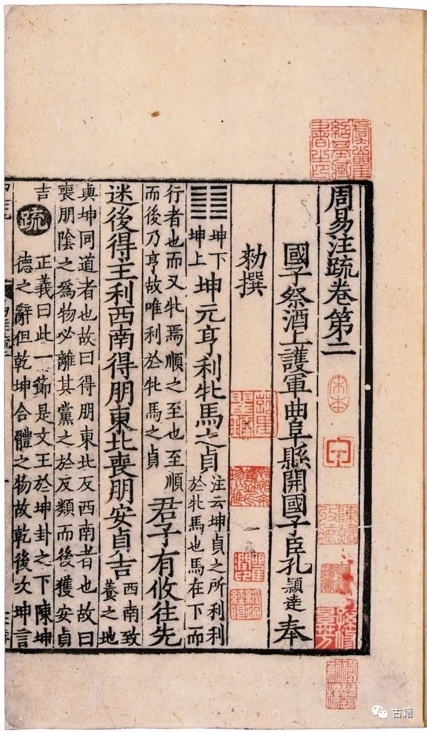 周易注疏卷第二
國子祭酒上護軍曲阜縣開國子臣孔穎達奉
勑撰
坤下坤上 坤元亨利牝馬之貞 注云坤貞之所利利
於牝馬也馬在下而
行者也而又牝焉順之至也至順
而後乃亨故唯利於牝馬之貞 君子有攸往先
迷後得主利西南得朋東北喪朋安貞吉 西南致
養之地
與坤同道者也故曰得朋東北反西南者也故曰
喪朋陰之為物必離其黨之於反類而後獲安貞
吉 疏 正義曰此一節是文王於坤卦之下陳坤
德之辭但乾坤合體之物故乾後次坤言
古籍